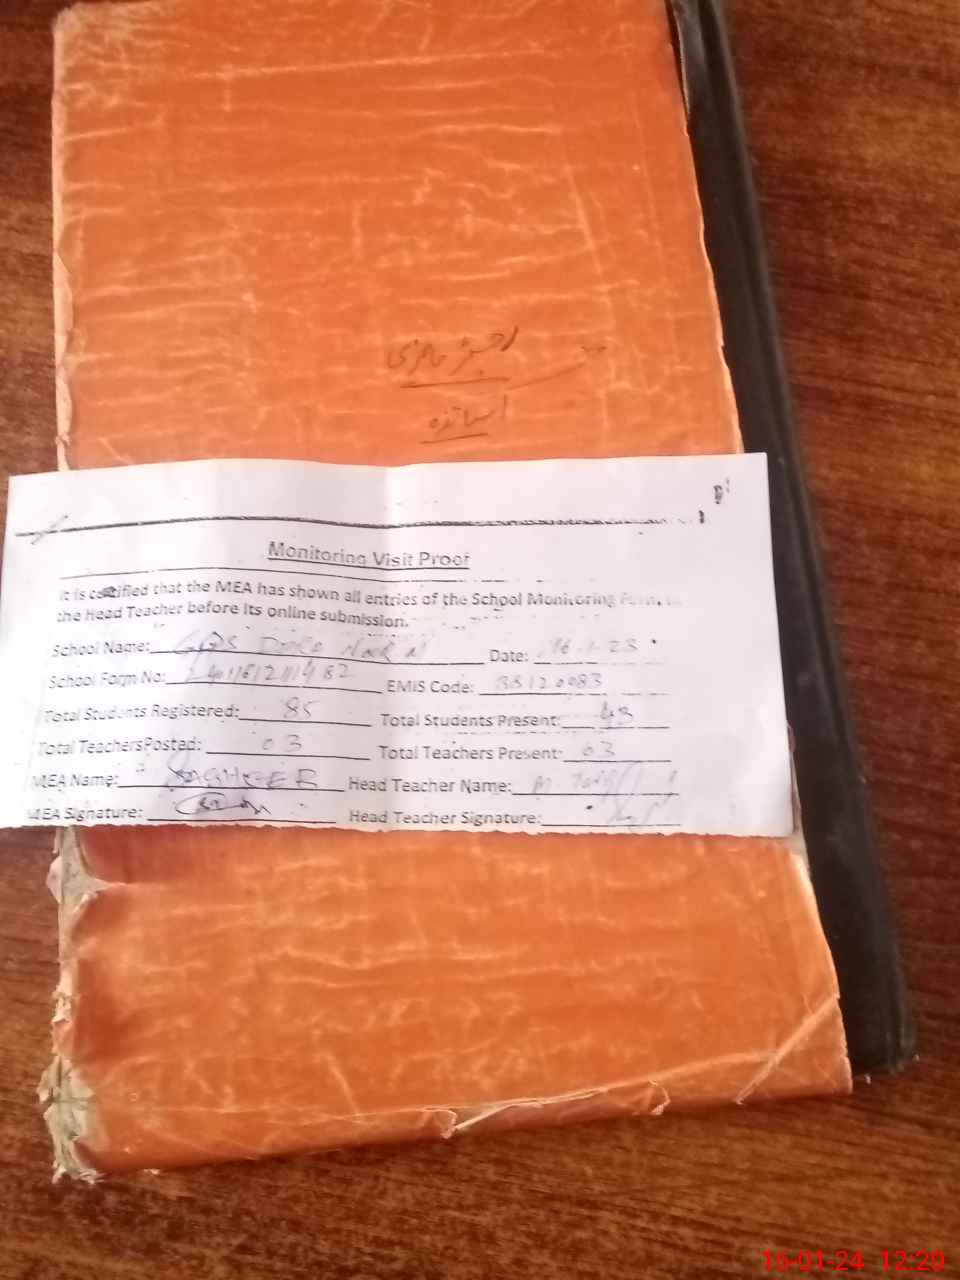 رجسٹر حاضری
اساتذہ
Monitoring Visit Proof
It is certified that the MEA has shown all entries of the School Monitoring Form to
the Head Teacher before its online submission.
School Name: GPS Date: 16-1-23
School Form No: EMIS Code: 38120083
Total Students Registered: 85 Total Students Present: 43
Total TeachersPosted: 03 Total Teachers Present: 03
MEA Name: Head Teacher Name: M
MEA Signature: Head Teacher Signature:
16-01-24 12:20